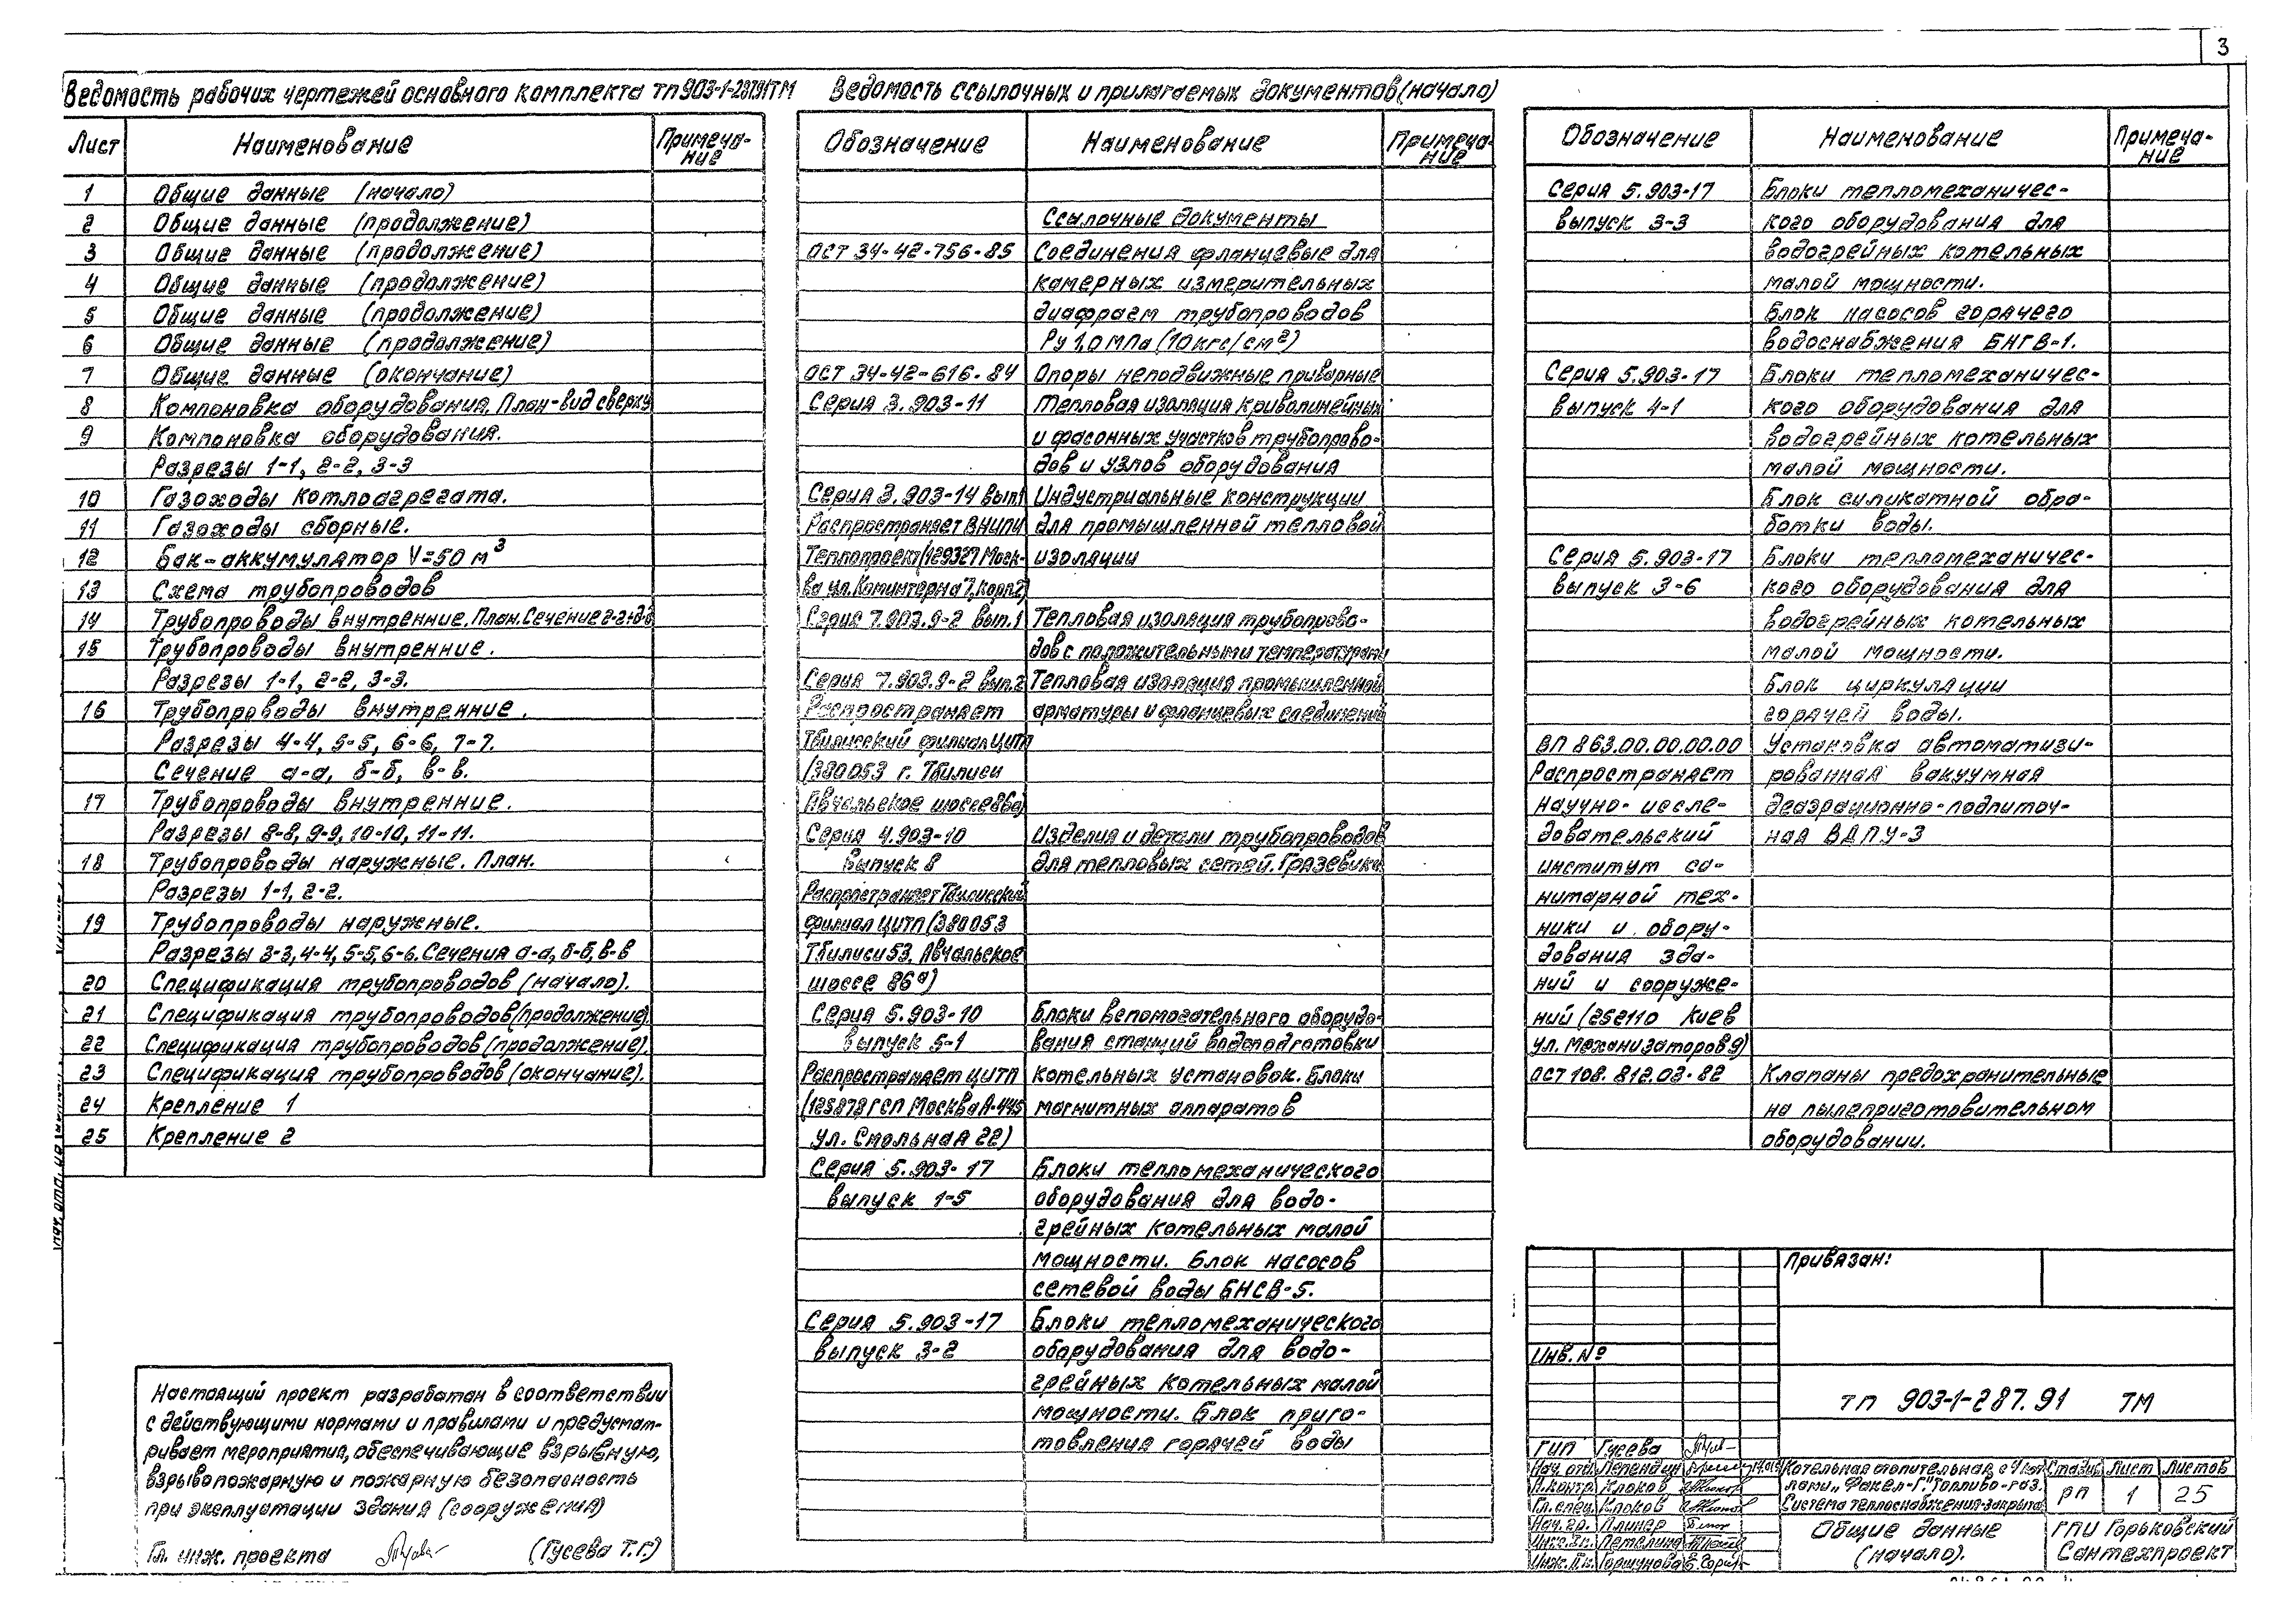 3
Ведомость рабочих чертежей основного комплекта ТП 903-1-287.91 ТМ
Лист Наименование Примеча-
ние
1 Общие данные (начало)
2 Общие данные (продолжение)
3 Общие данные (продолжение)
4 Общие данные (продолжение)
5 Общие данные (продолжение)
6 Общие данные (продолжение)
7 Общие данные (окончание)
8 Компоновка оборудования. План-вид сверху
9 Компоновка оборудования.
Разрезы 1-1, 2-2, 3-3
10 Газоходы котлоагрегата.
11 Газоходы сборные.
12 Бак-аккумулятор V=50 м³
13 Схема трубопроводов
14 Трубопроводы внутренние. План. Сечение
15 Трубопроводы внутренние.
Разрезы 1-1, 2-2, 3-3.
16 Трубопроводы внутренние.
Разрезы 4-4, 5-5, 6-6, 7-7.
Сечение а-а, б-б, в-в.
17 Трубопроводы внутренние.
Разрезы 8-8, 9-9, 10-10, 11-11.
18 Трубопроводы наружные. План.
Разрезы 1-1, 2-2.
19 Трубопроводы наружные.
Разрезы 3-3, 4-4, 5-5, 6-6. Сечения а-а, б-б, в-в
20 Спецификация трубопроводов (начало).
21 Спецификация трубопроводов (продолжение).
22 Спецификация трубопроводов (продолжение).
23 Спецификация трубопроводов (окончание).
24 Крепление 1
25 Крепление 2
Настоящий проект разработан в соответствии
с действующими нормами и правилами и предусмат-
ривает мероприятия, обеспечивающие взрывную,
взрывопожарную и пожарную безопасность
при эксплуатации здания (сооружения)
Гл. инж. проекта (Гусева Т.Г.)
Ведомость ссылочных и прилагаемых документов (начало)
Обозначение Наименование Примеча-
ние
Ссылочные документы
ОСТ 34-42-756-85 Соединения фланцевые для
камерных измерительных
диафрагм трубопроводов
Ру 1,0 МПа (10 кгс/см²)
ОСТ 34-42-616-84 Опоры неподвижные приварные
Серия 3.903-11 Тепловая изоляция криволинейных
и фасонных участков трубопрово-
дов и узлов оборудования
Серия 3.903-14 вып.1 Индустриальные конструкции
Распространяет ВНИПИ для промышленной тепловой
Теплопроект (129327 Моск- изоляции
ва ул. Коминтерна 7, корп.2)
Серия 7.903.9-2 вып.1 Тепловая изоляция трубопрово-
дов с положительными температурами
Серия 7.903.9-2 вып.2 Тепловая изоляция промышленной
Распространяет арматуры и фланцевых соединений
Тбилисский филиал ЦИТП
(380053 г. Тбилиси
Авчальское шоссе 86а)
Серия 4.903-10 Изделия и детали трубопроводов
Выпуск 8 для тепловых сетей. Грязевики
Распространяет Тбилисский
филиал ЦИТП (380053
Тбилиси 53, Авчальское
шоссе 86а)
Серия 5.903-10 Блоки вспомогательного оборудо-
выпуск 5-1 вания станций водоподготовки
Распространяет ЦИТП котельных установок. Блоки
(125878 ГСП Москва А-445 магнитных аппаратов
ул. Смольная 22)
Серия 5.903-17 Блоки тепломеханического
выпуск 1-5 оборудования для водо-
грейных котельных малой
мощности. Блок насосов
сетевой воды БНСВ-5.
Серия 5.903-17 Блоки тепломеханического
выпуск 3-2 оборудования для водо-
грейных котельных малой
мощности. Блок приго-
товления горячей воды
Обозначение Наименование Примеча-
ние
Серия 5.903-17 Блоки тепломеханичес-
выпуск 3-3 кого оборудования для
водогрейных котельных
малой мощности.
Блок насосов горячего
водоснабжения БНГВ-1.
Серия 5.903-17 Блоки тепломеханичес-
выпуск 4-1 кого оборудования для
водогрейных котельных
малой мощности.
Блок силикатной обра-
ботки воды.
Серия 5.903-17 Блоки тепломеханичес-
выпуск 3-6 кого оборудования для
водогрейных котельных
малой мощности.
Блок циркуляции
горячей воды.
ВП 863.00.00.00.00 Установка автоматизи-
Распространяет рованная вакуумная
научно-иссле- деаэрационно-подпиточ-
довательский ная ВДПУ-3
институт са-
нитарной тех-
ники и обору-
дования зда-
ний и сооруже-
ний (252110 Киев
ул. Механизаторов 9)
ОСТ 108.812.03-82 Клапаны предохранительные
на пылеприготовительном
оборудовании.
Привязан:
Инв. №
ТП 903-1-287.91 ТМ
ГИП Гусева
Нач. отд. Лепендин
Н.контр. Клоков
Гл. спец. Клоков
Нач. гр. Плинер
Инж. Петелина
Инж. Горшунова
Котельная отопительная с 4 кот-
лами „Факел-Г". Топливо-газ.
Система теплоснабжения-закрытая
Стадия Лист Листов
РП 1 25
Общие данные
(начало).
ГПИ Горьковский
Сантехпроект